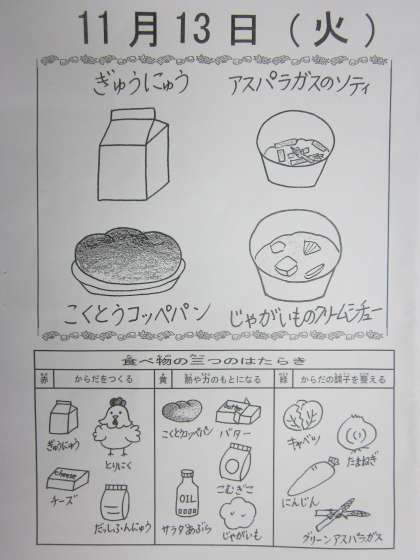 11月13日(火)
ぎゅうにゅう
アスパラガスのソティ
こくとうコッペパン
じゃがいものクリームシチュー
食べ物の三つのはたらき
赤 からだをつくる
黄 熱や力のもとになる
緑 からだの調子を整える
ぎゅうにゅう
とりにく
cheese
チーズ
だっしふんにゅう
こくとうコッペパン
butter
バター
こむぎこ
OIL
サラダあぶら
じゃがいも
キャベツ
たまねぎ
にんじん
グリーンアスパラガス